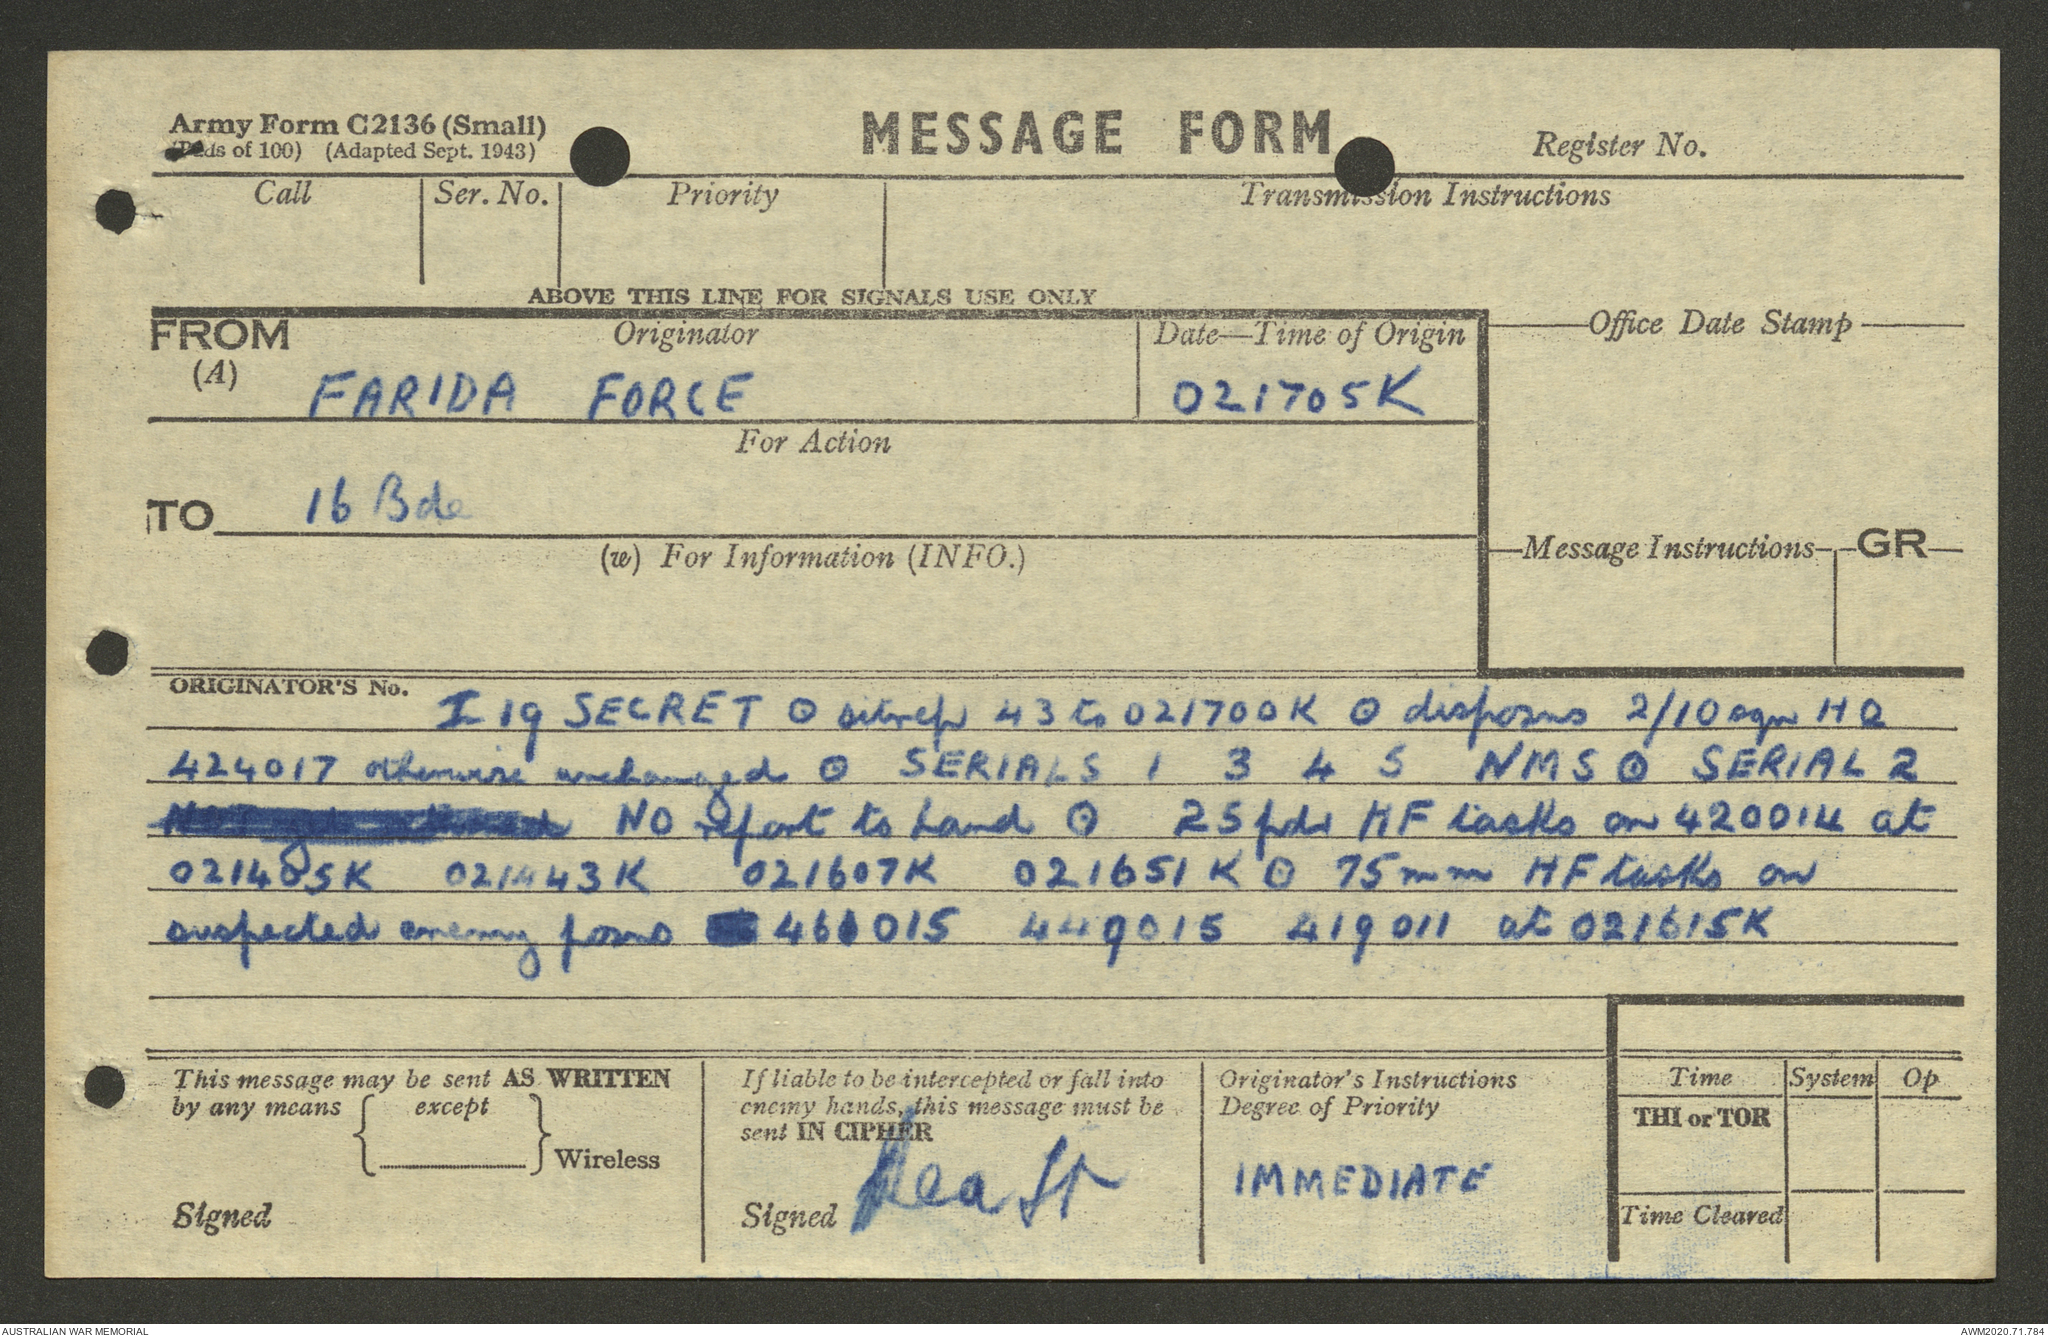 Army Form C2136 (Small)
MESSAGE FORM
Register No.
(Pads of 100) (Adapted Sept. 1943)
Call
Ser. No.
Priority
Transmission Instructions
ABOVE THIS LINE FOR SIGNALS USE ONLY
FROM
(A)
Originator
Date—Time of Origin
Office Date Stamp
FARIDA FORCE
021705K
For Action
TO
16 Bde
Message Instructions
GR
(w) For Information (INFO.)
ORIGINATOR'S No.
I 19 SECRET ⊙ sitrep 43 to 021700K ⊙ disposns 2/10 sqn HQ
424017 otherwise unchanged ⊙ SERIALS 1 3 4 5 NMS ⊙ SERIAL 2
NO report to hand ⊙ 25 pdr HF tasks on 420014 at
021405K 021443K 021607K 021651K ⊙ 75mm HF tasks on
suspected enemy posns 461015 449015 419011 at 021615K
This message may be sent AS WRITTEN
by any means { except } Wireless
Signed
If liable to be intercepted or fall into
enemy hands, this message must be
sent IN CIPHER
Signed
Originator's Instructions
Degree of Priority
IMMEDIATE
Time
System
Op
THI or TOR
Time Cleared
AUSTRALIAN WAR MEMORIAL
AWM2020.71.784